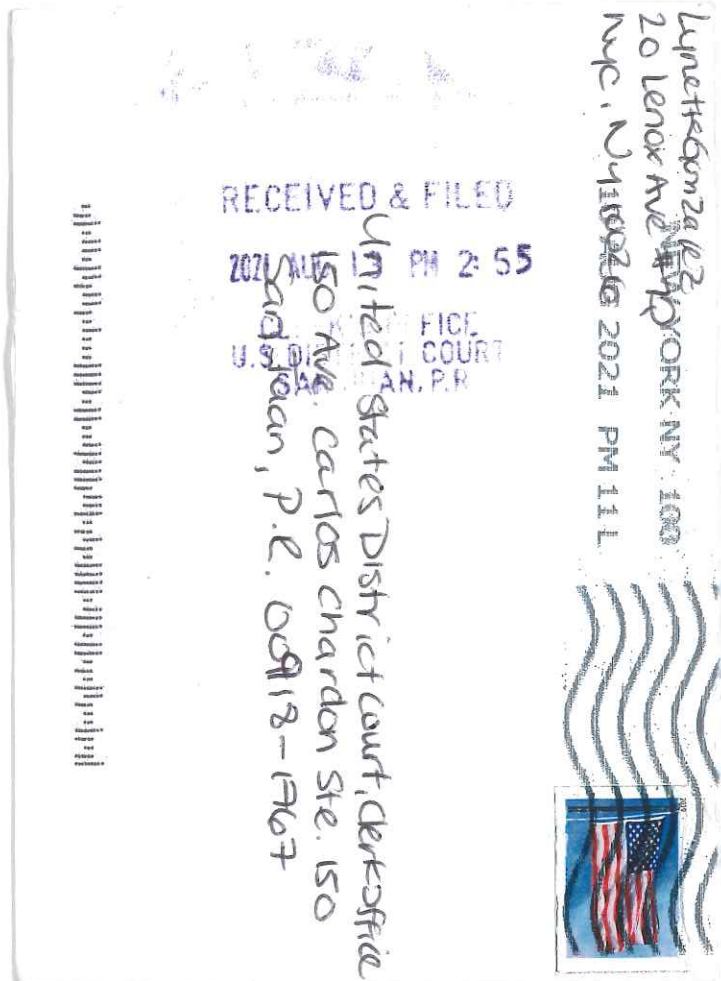 Lynette Gonzalez
20 Lenox Ave
NYC, NY 10026
NEW YORK NY 100
2021 PM 11 L
RECEIVED & FILED
2021 AUG 13 PM 2:55
OFFICE
U.S. DISTRICT COURT
SAN JUAN, P.R
United States District Court, Clerk office
150 Ave. Carlos Chardon Ste. 150
San Juan, P.R. 00918-1767